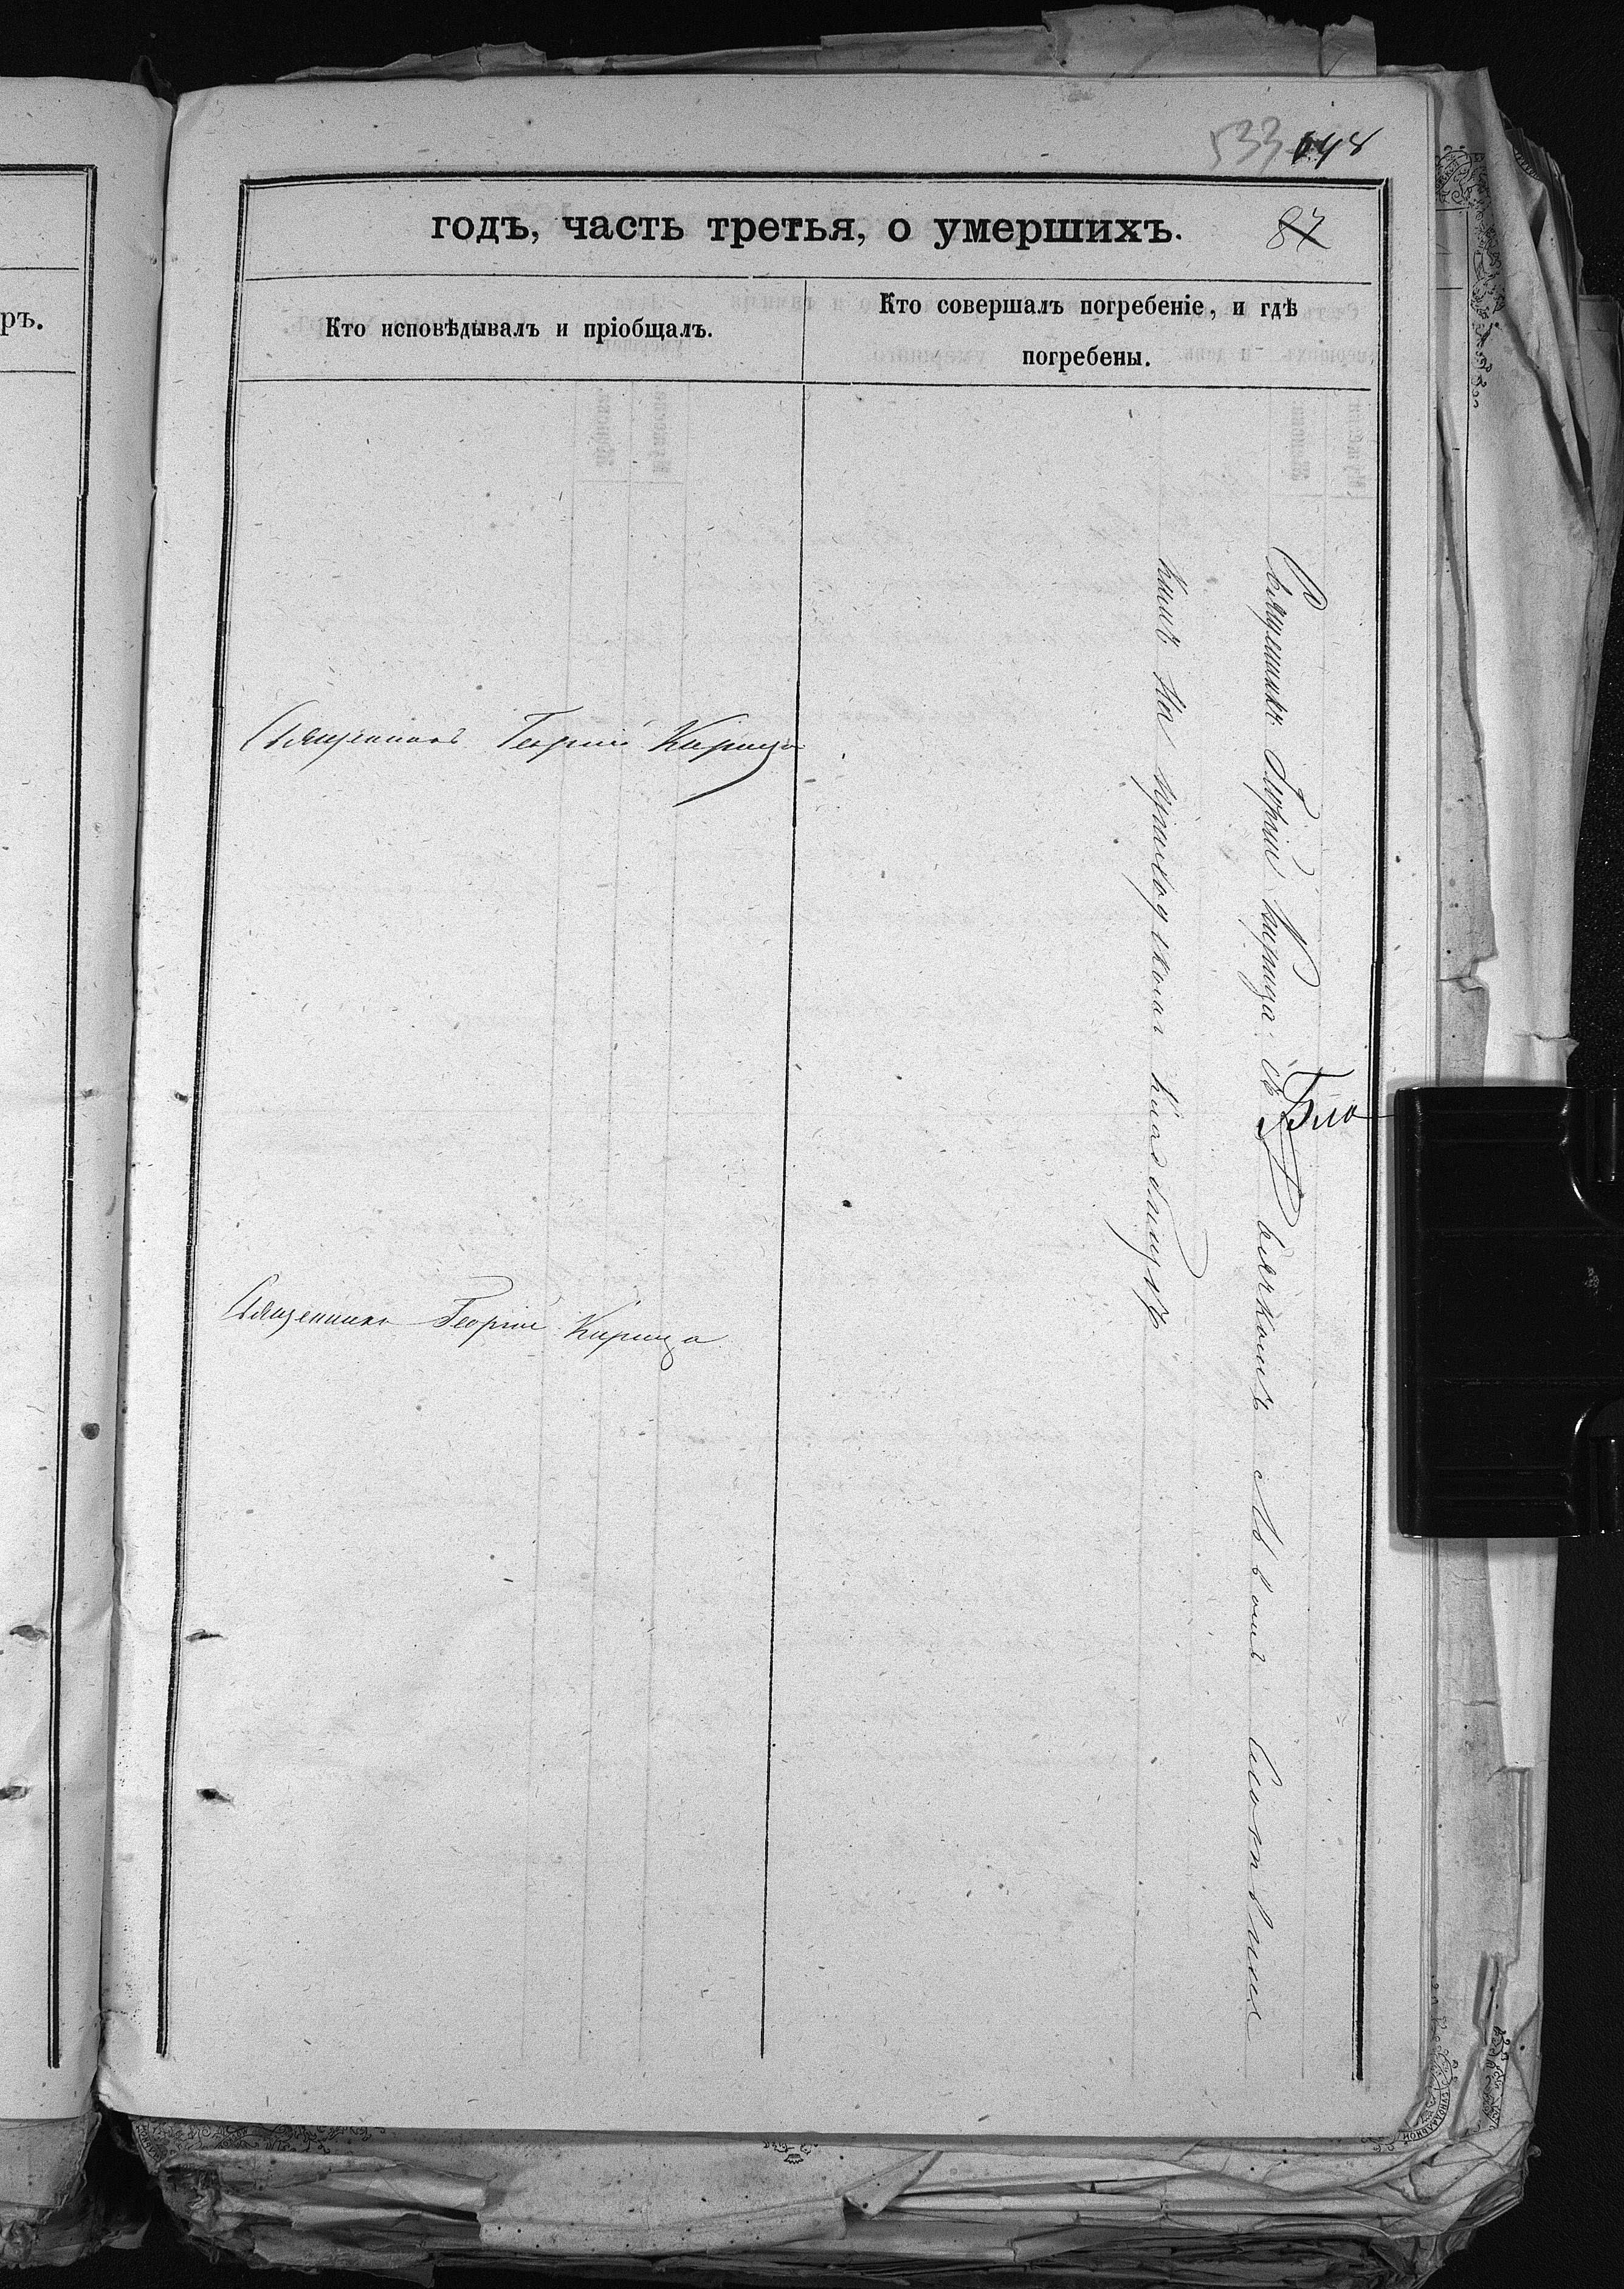 533 648
годъ, часть третья, о умершихъ. 87
Кто исповѣдывалъ и пріобщалъ.
Кто совершалъ погребеніе, и гдѣ
погребены.
ръ.
Священникъ Георгій Кирица
Священникъ Георгій Кирица
Священникъ Георгій Кирица съ
кимъ на приходскомъ кладбищѣ
Бла